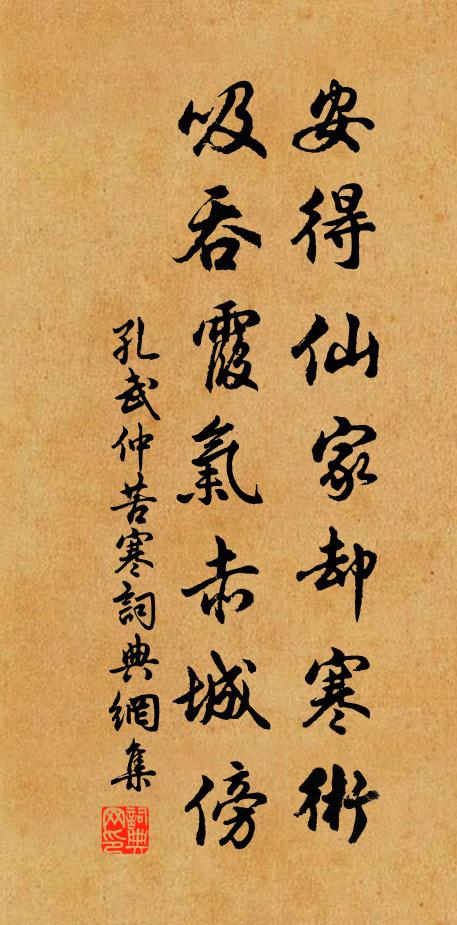 安得仙家却寒術
吸吞霞氣赤城傍
孔武仲苦寒詞典網集
詞典网印